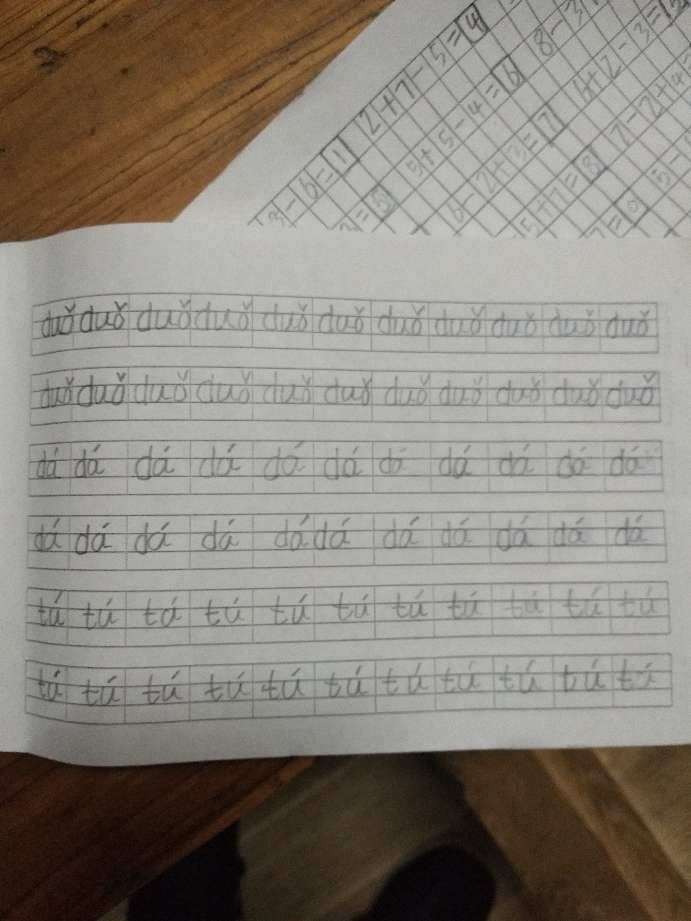 3-6=1 2+7-5=4
5+5-4=6 8-3
6-2+3=7 6+2-3=
5+7= 7-2+4=
duǒ duǒ duǒ duǒ duǒ duǒ duǒ duǒ duǒ duǒ duǒ
duǒ duǒ duǒ duǒ duǒ duǒ duǒ duǒ duǒ duǒ duǒ
dá dá dá dá dá dá dá dá dá dá dá
dá dá dá dá dá dá dá dá dá dá dá
tú tú tú tú tú tú tú tú tú tú tú
tú tú tú tú tú tú tú tú tú tú tú